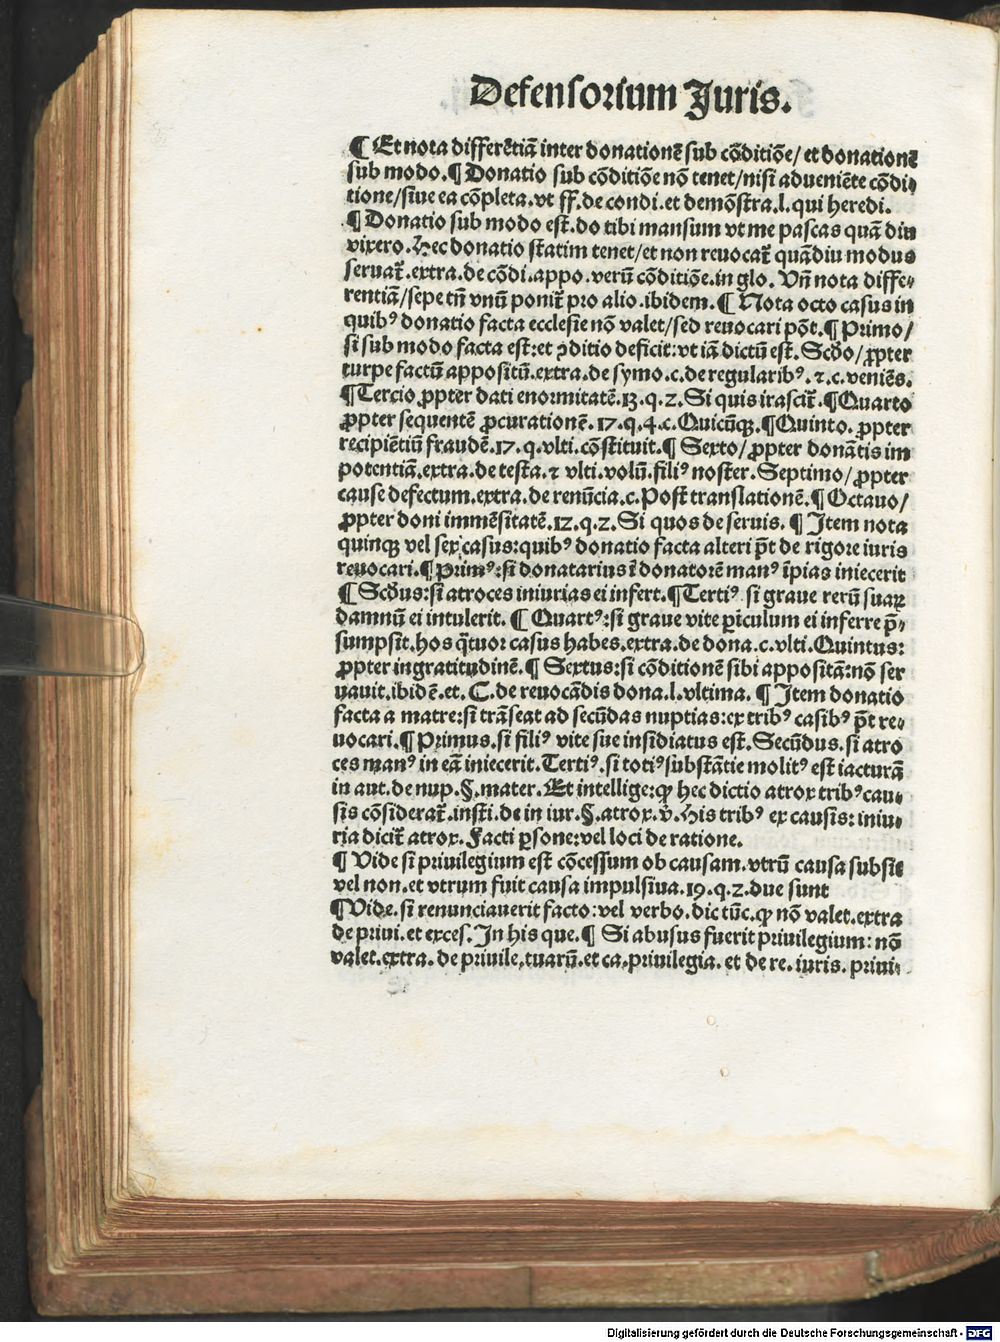 Defensorium Juris.
¶ Et nota differētiā inter donationē sub cōditiōe/ et donationē
sub modo. ¶ Donatio sub cōditiōe nō tenet/nisi adueniēte cōdi-
tione/siue ea cōpleta.vt ff.de condi.et demōstra.l.qui heredi.
¶ Donatio sub modo est.do tibi mansum vt me pascas quā diu
vixero.Hec donatio statim tenet/et non reuocat̄ quādiu modus
seruat̄.extra.de cōdi.appo.verū cōditiōe.in glo. Vn̄ nota diffe-
rentiā/sepe tn̄ vnū ponit̄ pro alio.ibidem. ¶ Nota octo casus in
quibꝰ donatio facta ecclesie nō valet/sed reuocari pōt. ¶ Primo/
si sub modo facta est:et ꝯditio deficit:vt iā dictū est.Scd̄o/ꝓpter
turpe factū appositū.extra.de symo.c.de regularibꝰ.⁊.c.veniēs.
¶ Tercio ꝓpter dati enormitatē.13.q.2.Si quis irascit̄. ¶ Quarto
ꝓpter sequentē ꝓcurationē.17.q.4.c.Quicūqꝫ. ¶ Quinto.ꝓpter
recipiētiū fraudē.17.q.vlti.cōstituit. ¶ Sexto/ꝓpter donātis im
potentiā.extra.de testa.⁊ vlti.volū.filiꝰ noster.Septimo/ꝓpter
cause defectum.extra.de renūcia.c.Post translationē. ¶ Octauo/
ꝓpter doni immēsitatē.12.q.2.Si quos de seruis. ¶ Item nota
quinqꝫ vel sex casus:quibꝰ donatio facta alteri p̄t de rigore iuris
reuocari. ¶ Primꝰ:si donatarius ī donatorē manꝰ īpias iniecerit
¶ Scd̄us:si atroces iniurias ei infert. ¶ Tertiꝰ si graue rerū suaꝝ
damnū ei intulerit. ¶ Quartꝰ:si graue vite ꝑiculum ei inferre p̄-
sumpsit.hos q̄tuor casus habes.extra.de dona.c.vlti.Quintus:
ꝓpter ingratitudinē. ¶ Sextus:si cōditionē sibi appositā:nō ser
uauit.ibidē.et.C.de reuocādis dona.l.vltima. ¶ Item donatio
facta a matre:si trāseat ad secūdas nuptias:ex tribꝰ casibꝰ p̄t re-
uocari. ¶ Primus.si filiꝰ vite sue insidiatus est.Secūdus.si atro
ces manꝰ in eā iniecerit.Tertiꝰ.si totiꝰ substātie molitꝰ est iacturā
in aut.de nup.§.mater.Et intellige:qꝙ hec dictio atrox tribꝰ cau-
sis cōsiderat̄.insti.de in iur.§.atrox.v̄.His tribꝰ ex causis:iniu-
ria dicit̄ atrox.Facti ꝑsone:vel loci de ratione.
¶ Vide si priuilegium est cōcessum ob causam.vtrū causa subsit
vel non.et vtrum fuit causa impulsiua.19.q.2.due sunt
¶ Vide.si renunciauerit facto:vel verbo.dic tūc.ꝙ nō valet.extra
de priui.et exces.In his que. ¶ Si abusus fuerit priuilegium:nō
valet.extra.de priuile,tuarū.et ca.priuilegia.et de re.iuris.priui-
Digitalisierung gefördert durch die Deutsche Forschungsgemeinschaft - DFG